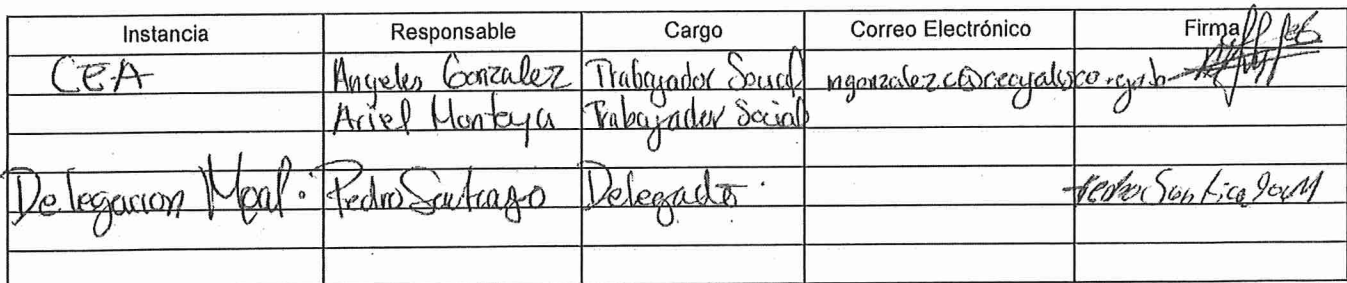 Instancia Responsable Cargo Correo Electrónico Firma
CEA Angeles Gonzalez Trabajador Social
Ariel Montoya Trabajador Social
Delegacion Mpal: Pedro Santiago Delegado